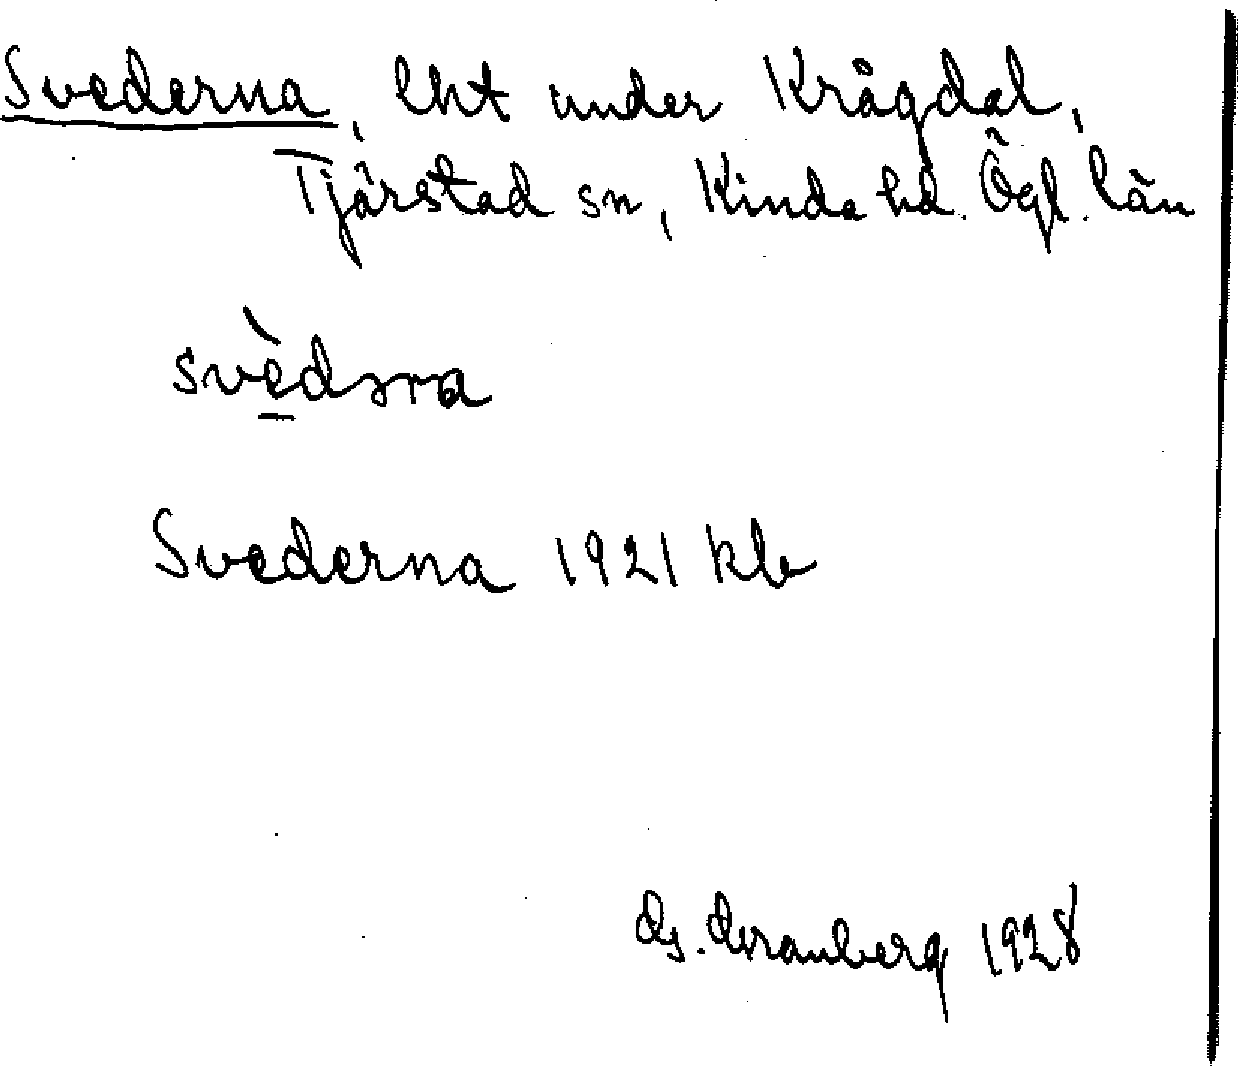 Svederna, lht under Krågdal,
Tjärstad sn, Kinda hd. Ögl. län
svèdərna
Svederna 1921 klb
G. Granberg 1928